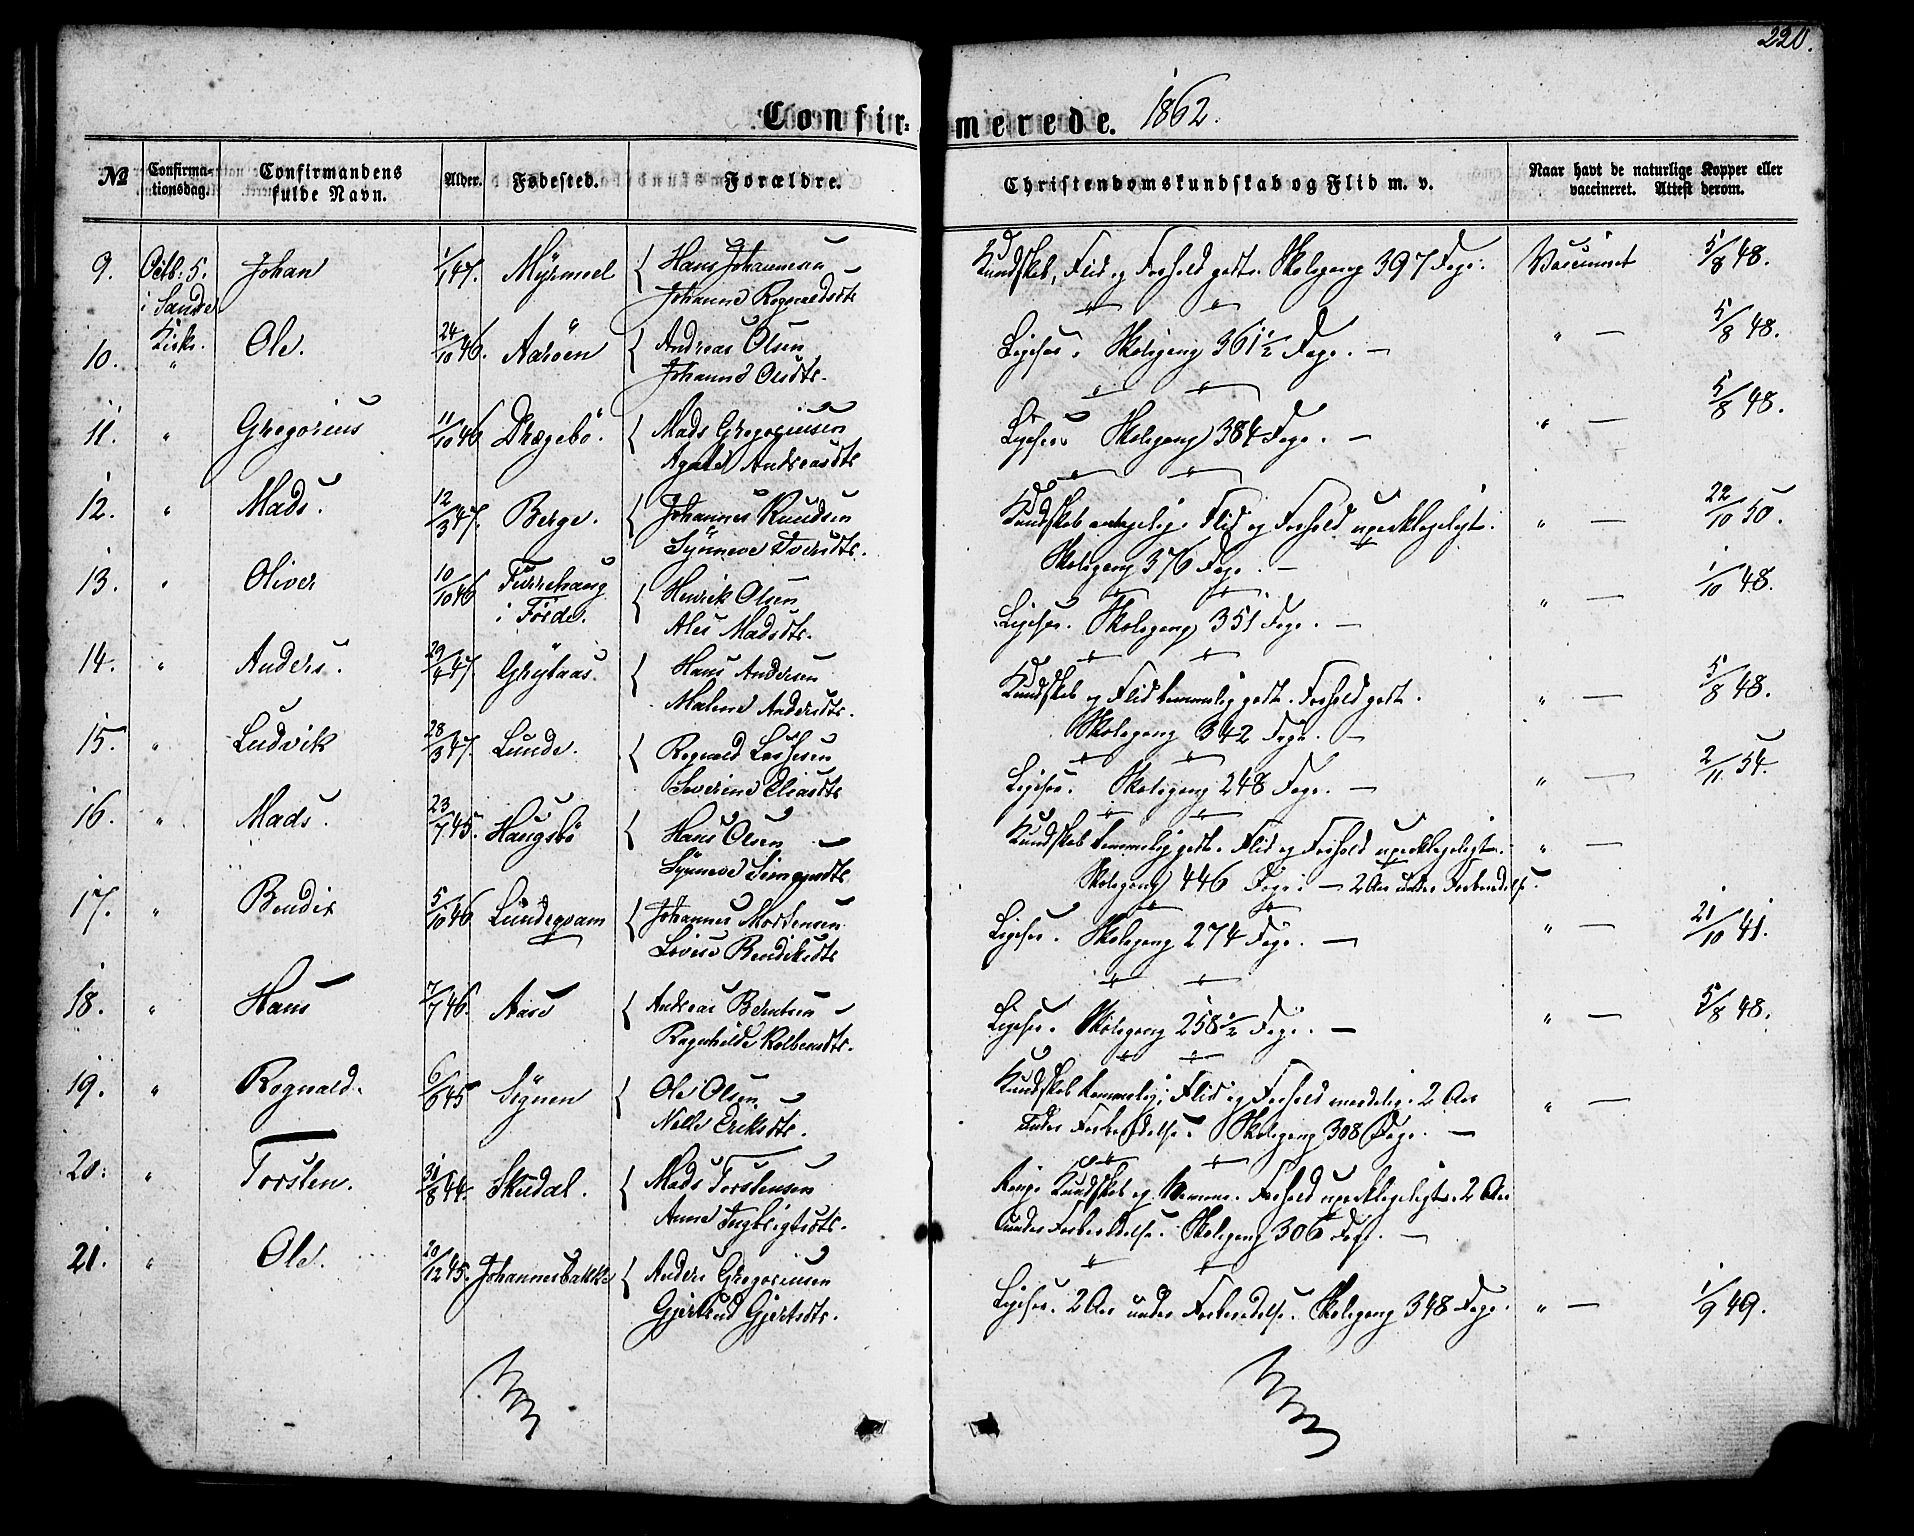 220.
Confirmerede. 1862.
№ Confirmationsdag. Confirmandens fulde Navn. Alder. Fødested. Forældre. Christendomskundskab og Flid m. v. Naar havt de naturlige Kopper eller vaccineret. Attest derom.
9. Octb. 5. Johan 1/1 47. Myrmeel { Hans Johannesen Kundskab, Flid og Forhold godt. Skolegang 397 Dage. Vaccineret 5/8 48.
i Sande Johanne Rognaldsdtr
Kirke.
10. " Ole. 24/10 46. Aaröen { Andreas Olsen Ligesaa. Skolegang 361 1/2 Dage. — " — 5/8 48.
Johanne Olsdtr.
11. " Gregorius 11/10 46 Drægebö. { Mads Gregoriusen Ligesaa. Skolegang 384 Dage. — " — 5/8 48.
Agathe Andreasdtr
12. " Mads. 12/3 47. Berge. { Johannes Knudsen Kundskab antagelig. Flid og Forhold upaaklageligt. " — 22/10 50.
Synneve Sverdtr. Skolegang 376 Dage. —
13. " Oliver 10/10 46 Furrehaug { Henrik Olsen Ligesaa. Skolegang 351 Dage. — " — 1/10 48.
i Förde. Ales Madsdtr.
14. " Anders. 29/4 47. Grytaas { Hans Andersen Kundskab og Flid temmelig godt. Forhold godt. " — 5/8 48.
Malene Andersdtr. Skolegang 342 Dage. —
15. " Ludvik 28/3 47. Lunde. { Rognald Lassesen Ligesaa. Skolegang 248 Dage. — " — 2/11 54.
Severine Eliasdtr
16. " Mads. 23/7 45. Haugsbö { Hans Olsen Kundskab temmelig godt. Flid og Forhold upaaklageligt. " —
Synneve Simensdtr Skolegang 446 Dage. — 2 Aar under Forberedelse.
17. " Bendix 5/10 46 Lundeqvam { Johannes Mortensen Ligesaa. Skolegang 274 Dage. — " — 21/10 41.
Lovise Bendiksdtr
18. " Hans 7/7 46. Aase { Andreas Berntsen Ligesaa. Skolegang 258 1/2 Dage. — " — 5/8 48.
Ragnhilde Kolbensdtr.
19. " Rognald. 6/6 45 Sygnen { Ole Olsen Kundskab temmelig, Flid og Forhold maadelig. 2 Aar " —
Nille Eriksdtr. under Forberedelse. Skolegang 308 Dage. —
20. " Torsten. 31/8 44. Skudal. { Mads Torstensen Ringe Kundskab og Nemme. Forhold upaaklageligt. 2 Aar
Anne Ingbrigtsdtr. under Forberedelse. Skolegang 306 Dage. —
21. " Ole. 20/12 45. Johannesbakke { Anders Gregoriusen Ligesaa. 2 Aar under Forberedelse. Skolegang 348 Dage. " — 1/9 49.
Gjertrud Gjertsdtr.